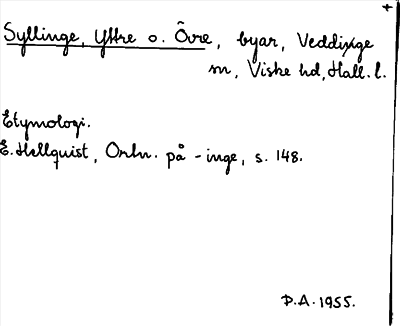 +
Syllinge, Yttre o. Övre, byar, Veddinge
sn, Viske hd, Hall. l.
Etymologi.
E. Hellquist, Ortn. på -inge, s. 148.
D.A. 1955.